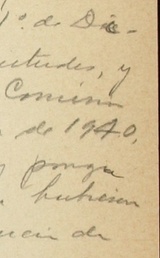 1º de Dic-
itudes, y
Comision
de 1940,
ponga
hubiesen
de